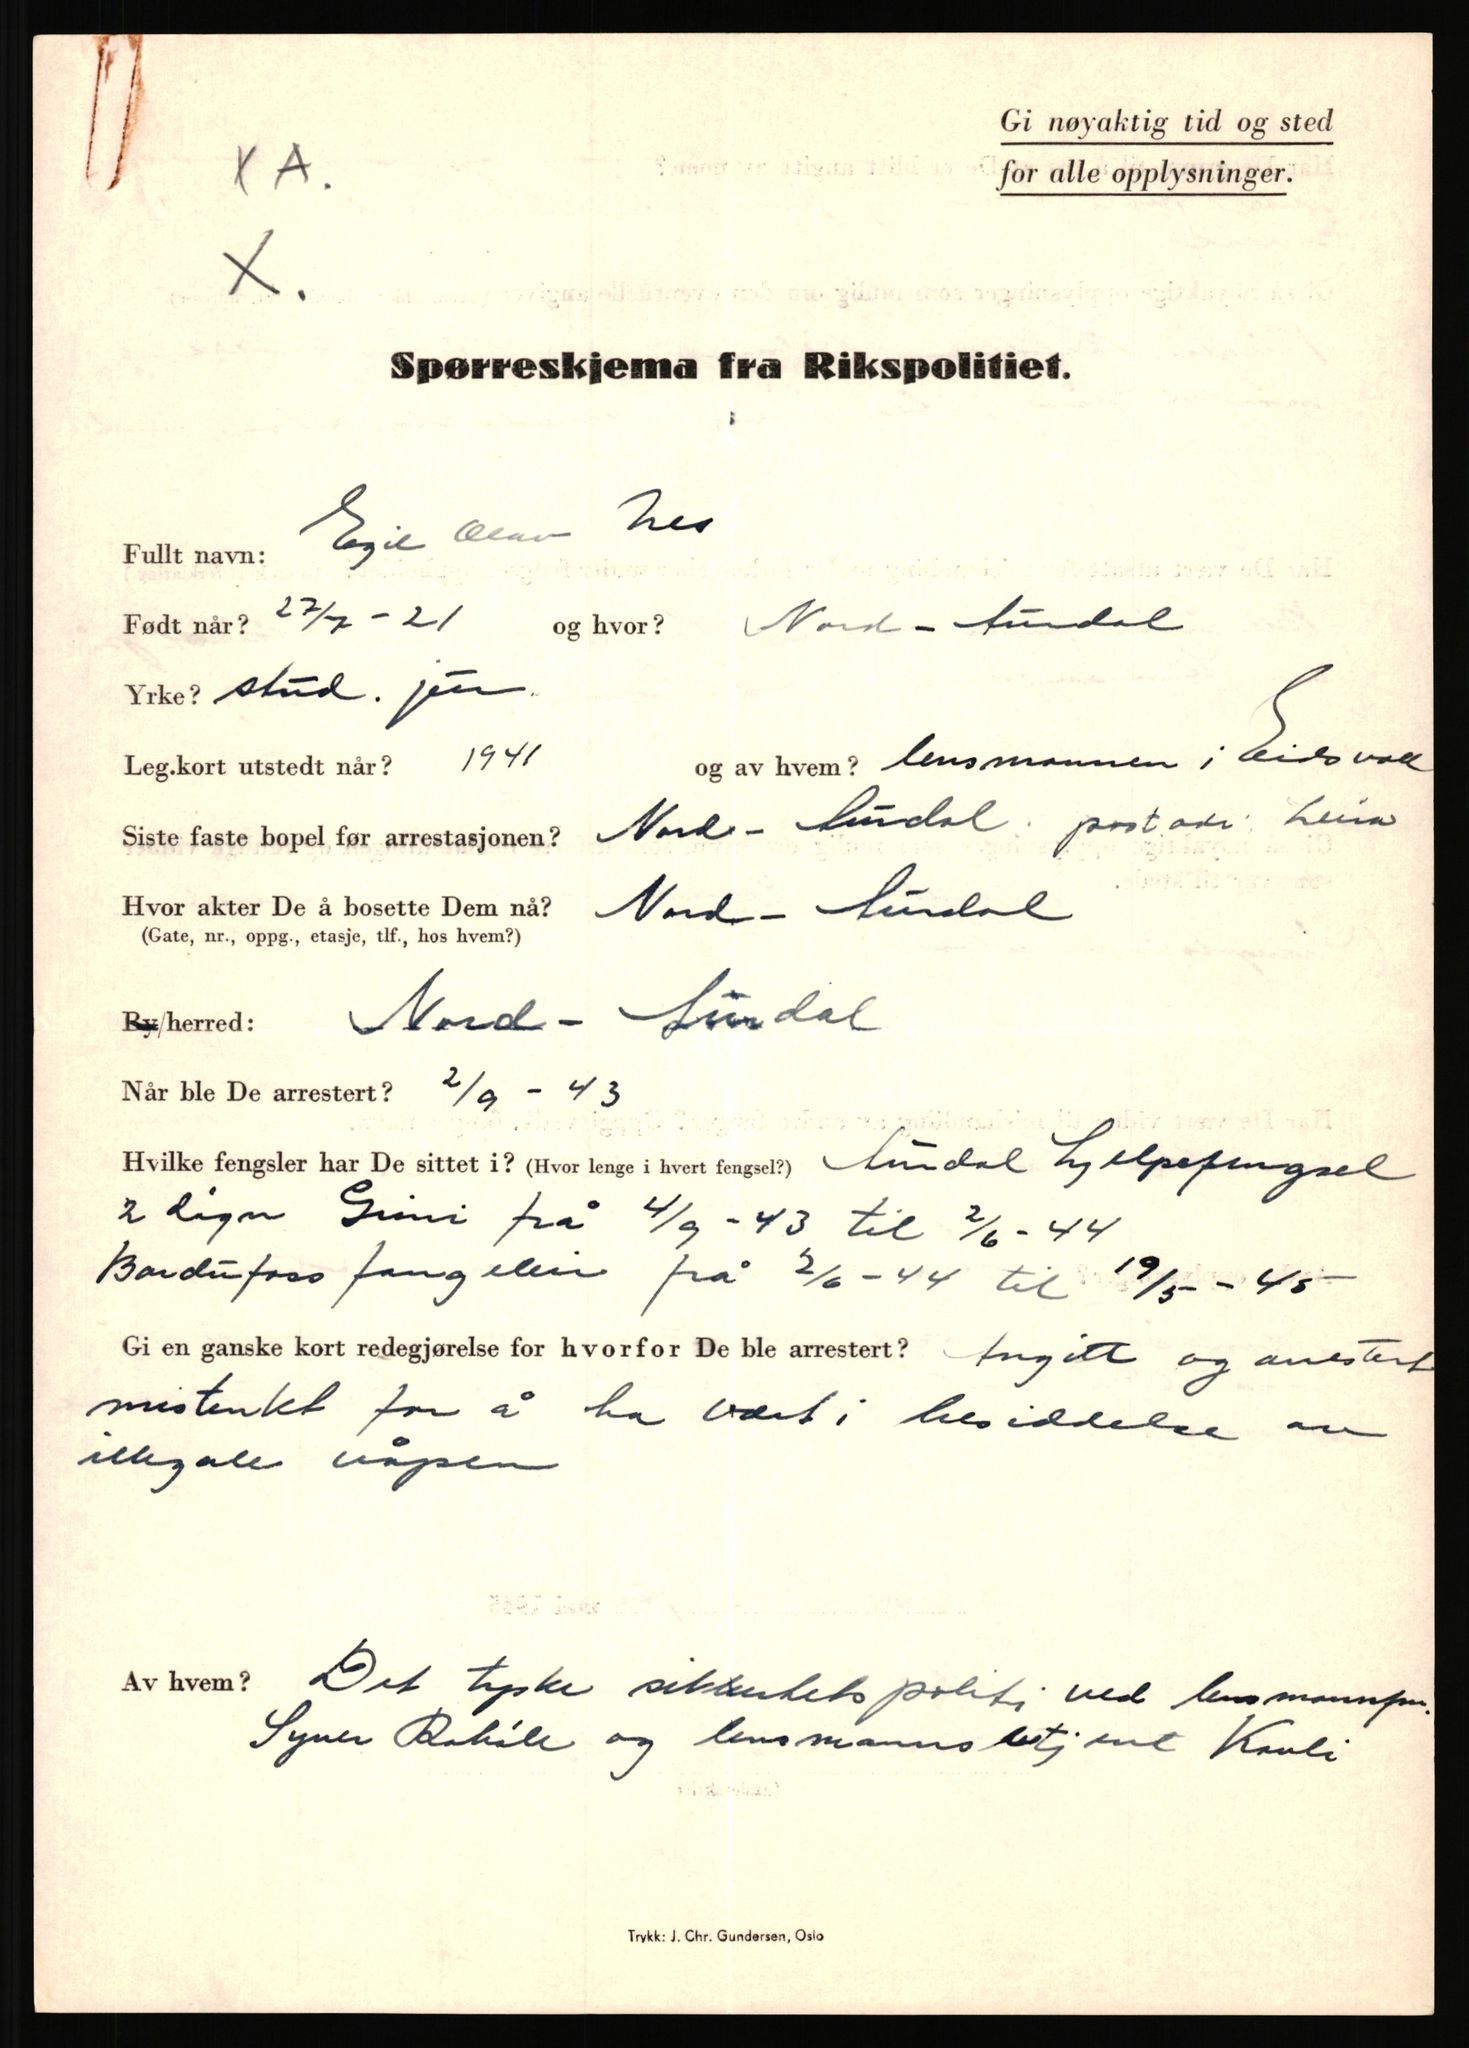 Gi nøyaktig tid og sted
for alle opplysninger.
X A.
X.
Spørreskjema fra Rikspolitiet.
Fullt navn: Egil Olav Nes
Født når? 27/7 - 21 og hvor? Nord - Aurdal
Yrke? stud. jur.
Leg.kort utstedt når? 1941 og av hvem? lensmannen i Eidsvoll
Siste faste bopel før arrestasjonen? Nord - Aurdal. postadr. Leira
Hvor akter De å bosette Dem nå? Nord - Aurdal
(Gate, nr., oppg., etasje, tlf., hos hvem?)
By/herred: Nord - Aurdal
Når ble De arrestert? 2/9 - 43
Hvilke fengsler har De sittet i? (Hvor lenge i hvert fengsel?) Aurdal hjelpefengsel
2 døgn Grini frå 4/9 - 43 til 2/6 - 44
Bardufoss fangeleir frå 2/6 - 44 til 19/5 - 45
Gi en ganske kort redegjørelse for hvorfor De ble arrestert? Angitt og arrestert
mistenkt for å ha vært i besiddelse av
illegale våpen
Av hvem? Det tyske sikkerhetspoliti ved lensmannfm.
Syver og lensmannsbetjent
Trykk: J. Chr. Gundersen, Oslo